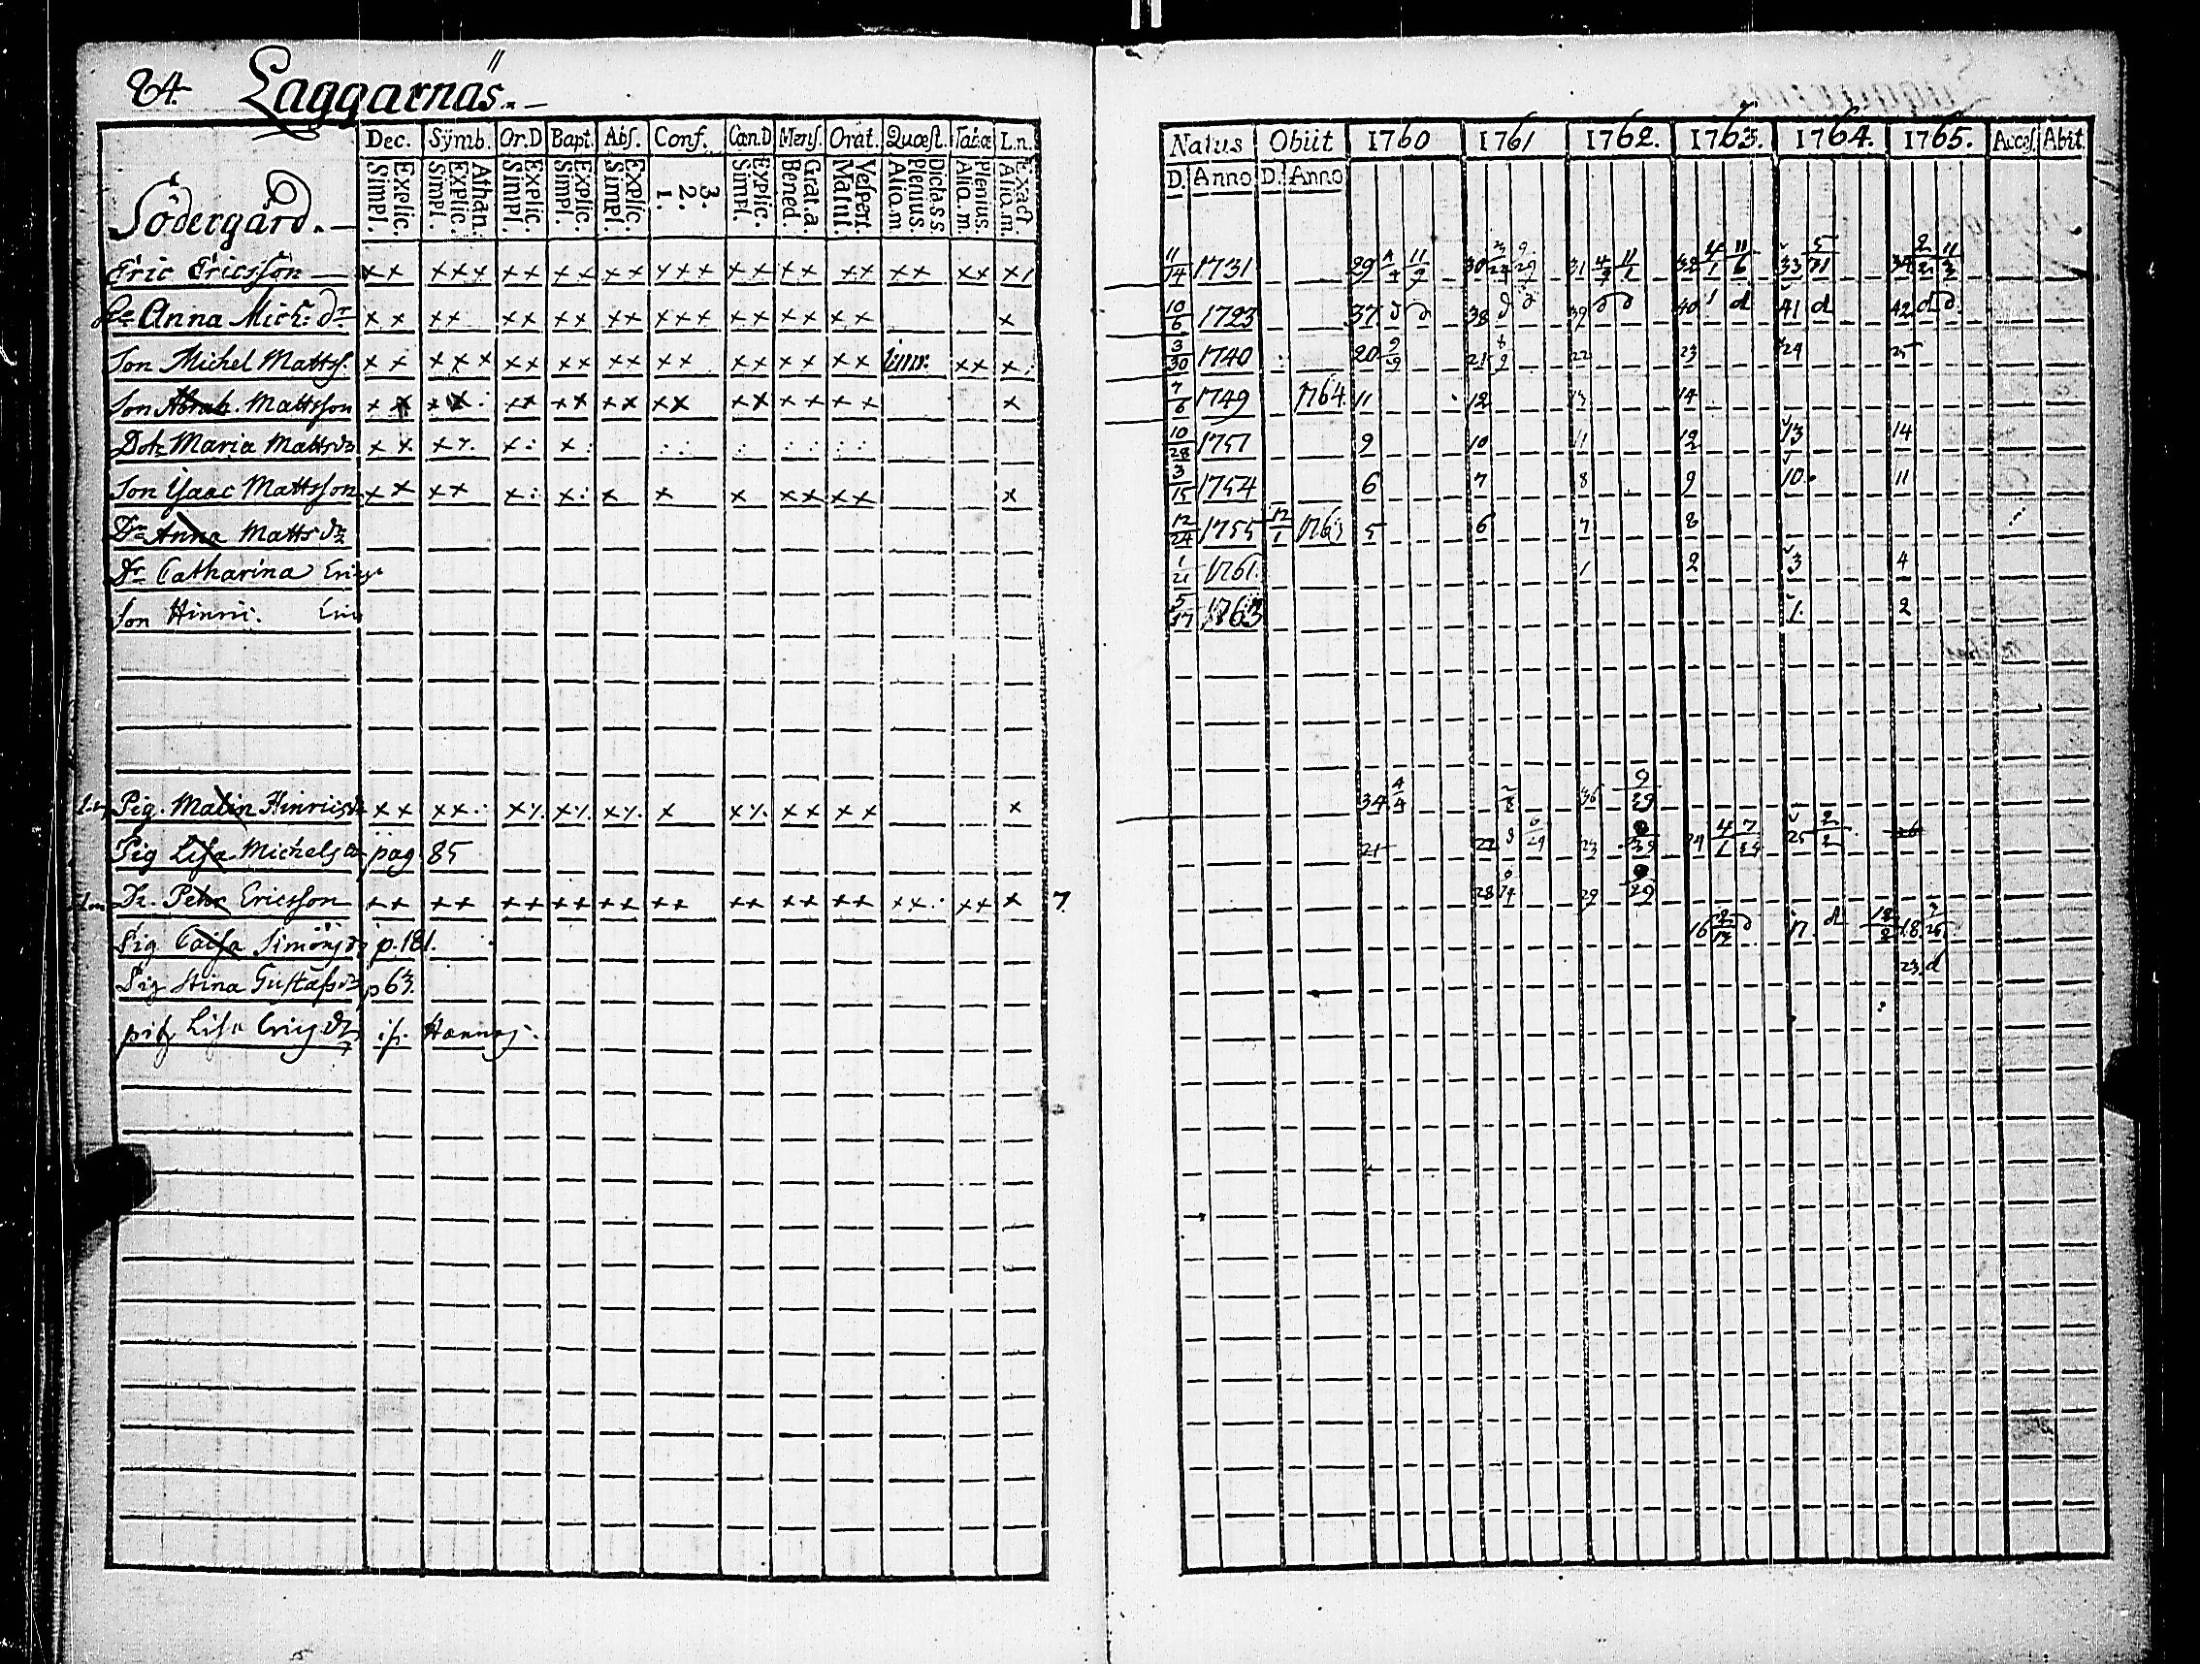 84. Laggarnäs.
Dec. Sÿmb. Or.D Bapt. Abs. Conf. Can.D Mens. Orat. Quæst. Tab.æ L.n.
Explic. Simpl. Athan. Explic. Simpl. Explic. Simpl. Explic. Simpl. Explic. Simpl. 3. 2. 1. Explic. Simpl. Grat.a. Bened. Vespert. Matut. Dicta s s Plenius. Alio.m Plenius. Alio.m. Exact. Alio.m.
Södergård.
Eric Ericsson x x x x x x x x x x x x x x x x x x x x x x x x x x
Anna Mich: dr x x x x x x x x x x x x x x x x x x x x
Son Michel Mattss. x x x x x x x x x x x x x x x x x x x x x x
Son Abrah. Mattsson x x x x x x x x x x x x x x x x x x x
Dotr Maria Mattsdr x x x x x
Son Ysaac Mattsson x x x x x x x x x x x x x x
Dr Anna Mattsdr
Dr Catharina
Son Hinric.
Pig. Malin Hinricsdr x x x x x x x x x x x x x x
Pig Lisa Michelsdr pag. 85
Dr. Petter Ericsson x x x x x x x x x x x x x x x x x x x x x x x 7.
Pig Caisa Simonsdr p. 181.
Pig Stina Gustafsdr p 63.
pig Lisa Ericsdr
Natus Obiit 1760 1761 1762. 1763. 1764. 1765. Acces. Abit
D. Anno D. Anno
11/14 1731 29 30 31 32 33 34
10/6 1723 37 d d 38 d d 39 d d 40 d 41 d 42 d d
3/30 1740 20 9/9 21 22 23 24 25
7/6 1749 1764 11 12 13 14
10/28 1751 9 10 11 12 13 14
3/15 1754 6 7 8 9 10 11
12/24 1755 12/1 1763 5 6 7 8
1/21 1761. 1 2 3 4
5/17 1763 1. 2
34 4/4 36 9/29
21 22 23 24 25 2/2 26
28 29
16 17. d 18
23. d